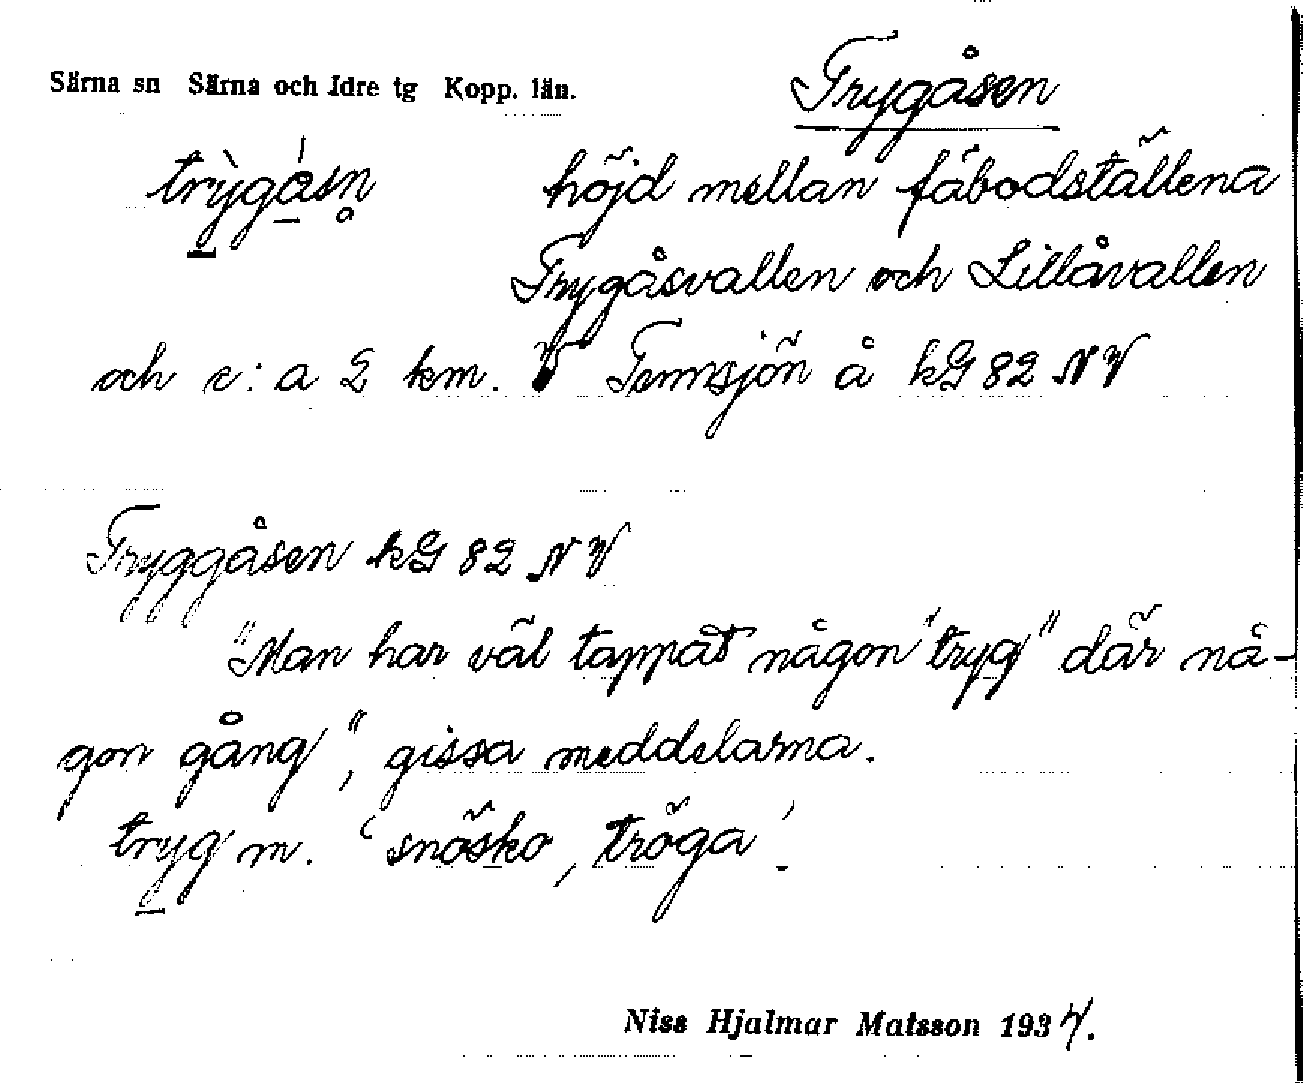 Särna sn Särna och Idre tg Kopp. län.
Trygåsen
trỳgá̱sn̥ höjd mellan fäbodställena
Trygåsvallen och Lillåvallen
och c:a 2 km. V Tennsjön å kG 82 NV
Tryggåsen kG 82 NV
"Man har väl tappat någon 'tryg' där nå-
gon gång", gissa meddelarna.
try̱g m. 'snösko, tröga'.
Niss Hjalmar Matsson 1937.